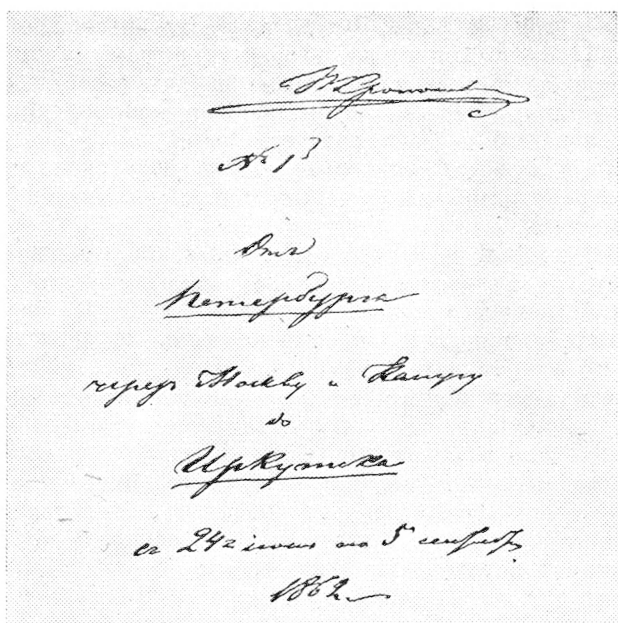 П Кропоткин
№ 1й
Отъ
Петербурга
черезъ Москву и Калугу
до
Иркутска
съ 24г июня по 5 сентября
1862